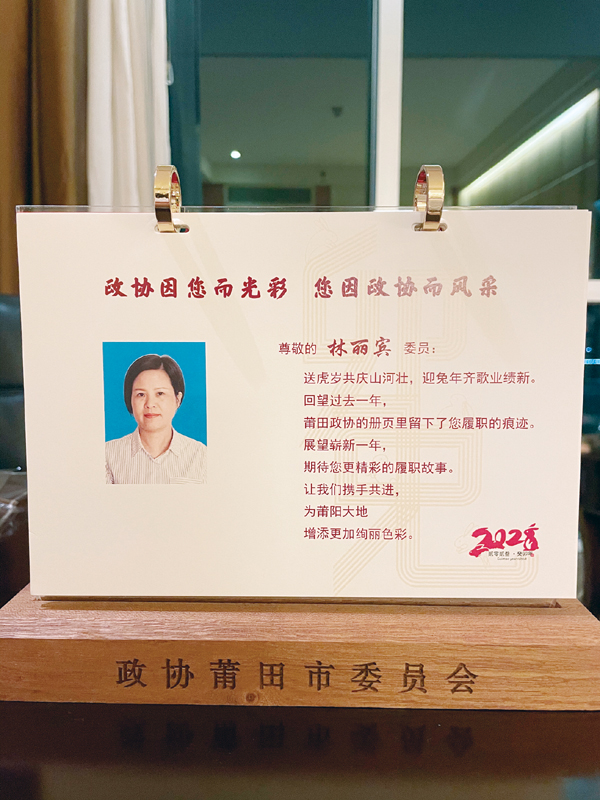 政协因您而光彩 您因政协而风采
尊敬的 林丽宾 委员：
送虎岁共庆山河壮，迎兔年齐歌业绩新。
回望过去一年，
莆田政协的册页里留下了您履职的痕迹。
展望崭新一年，
期待您更精彩的履职故事。
让我们携手共进，
为莆阳大地
增添更加绚丽色彩。
2023
政协莆田市委员会